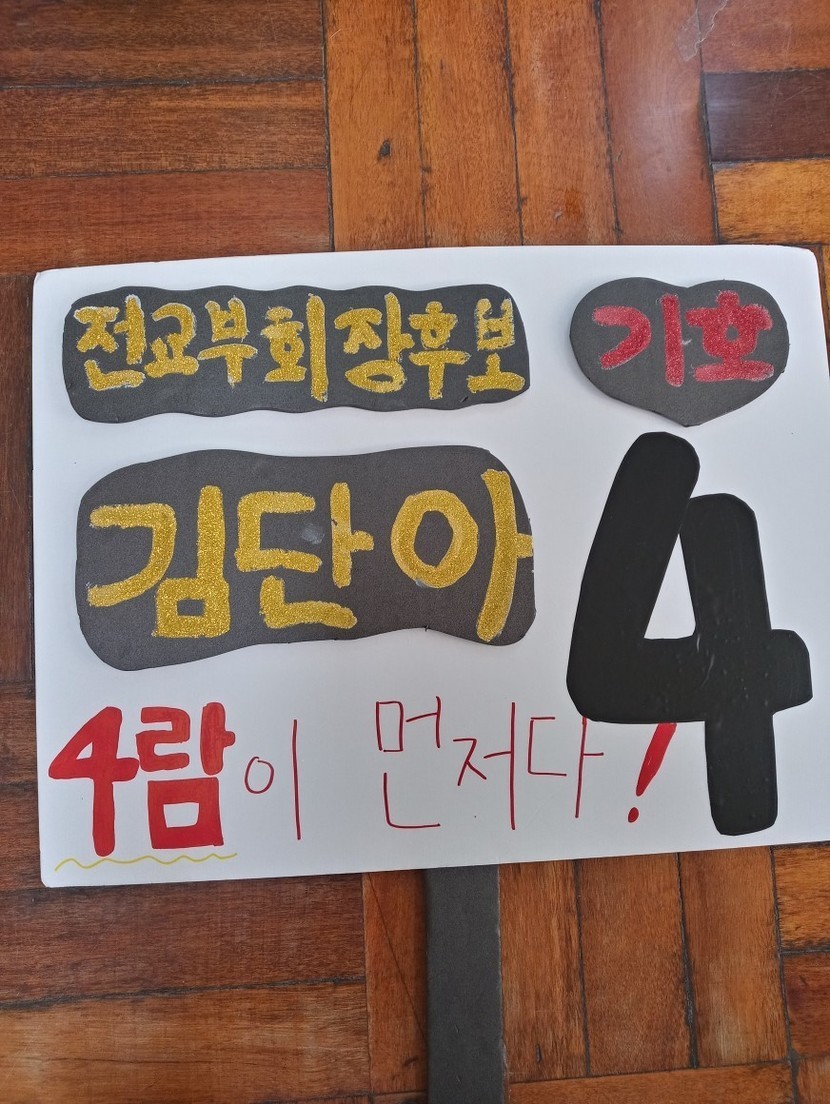 전교부회장후보
기호
김단아
4
4람이 먼저다!